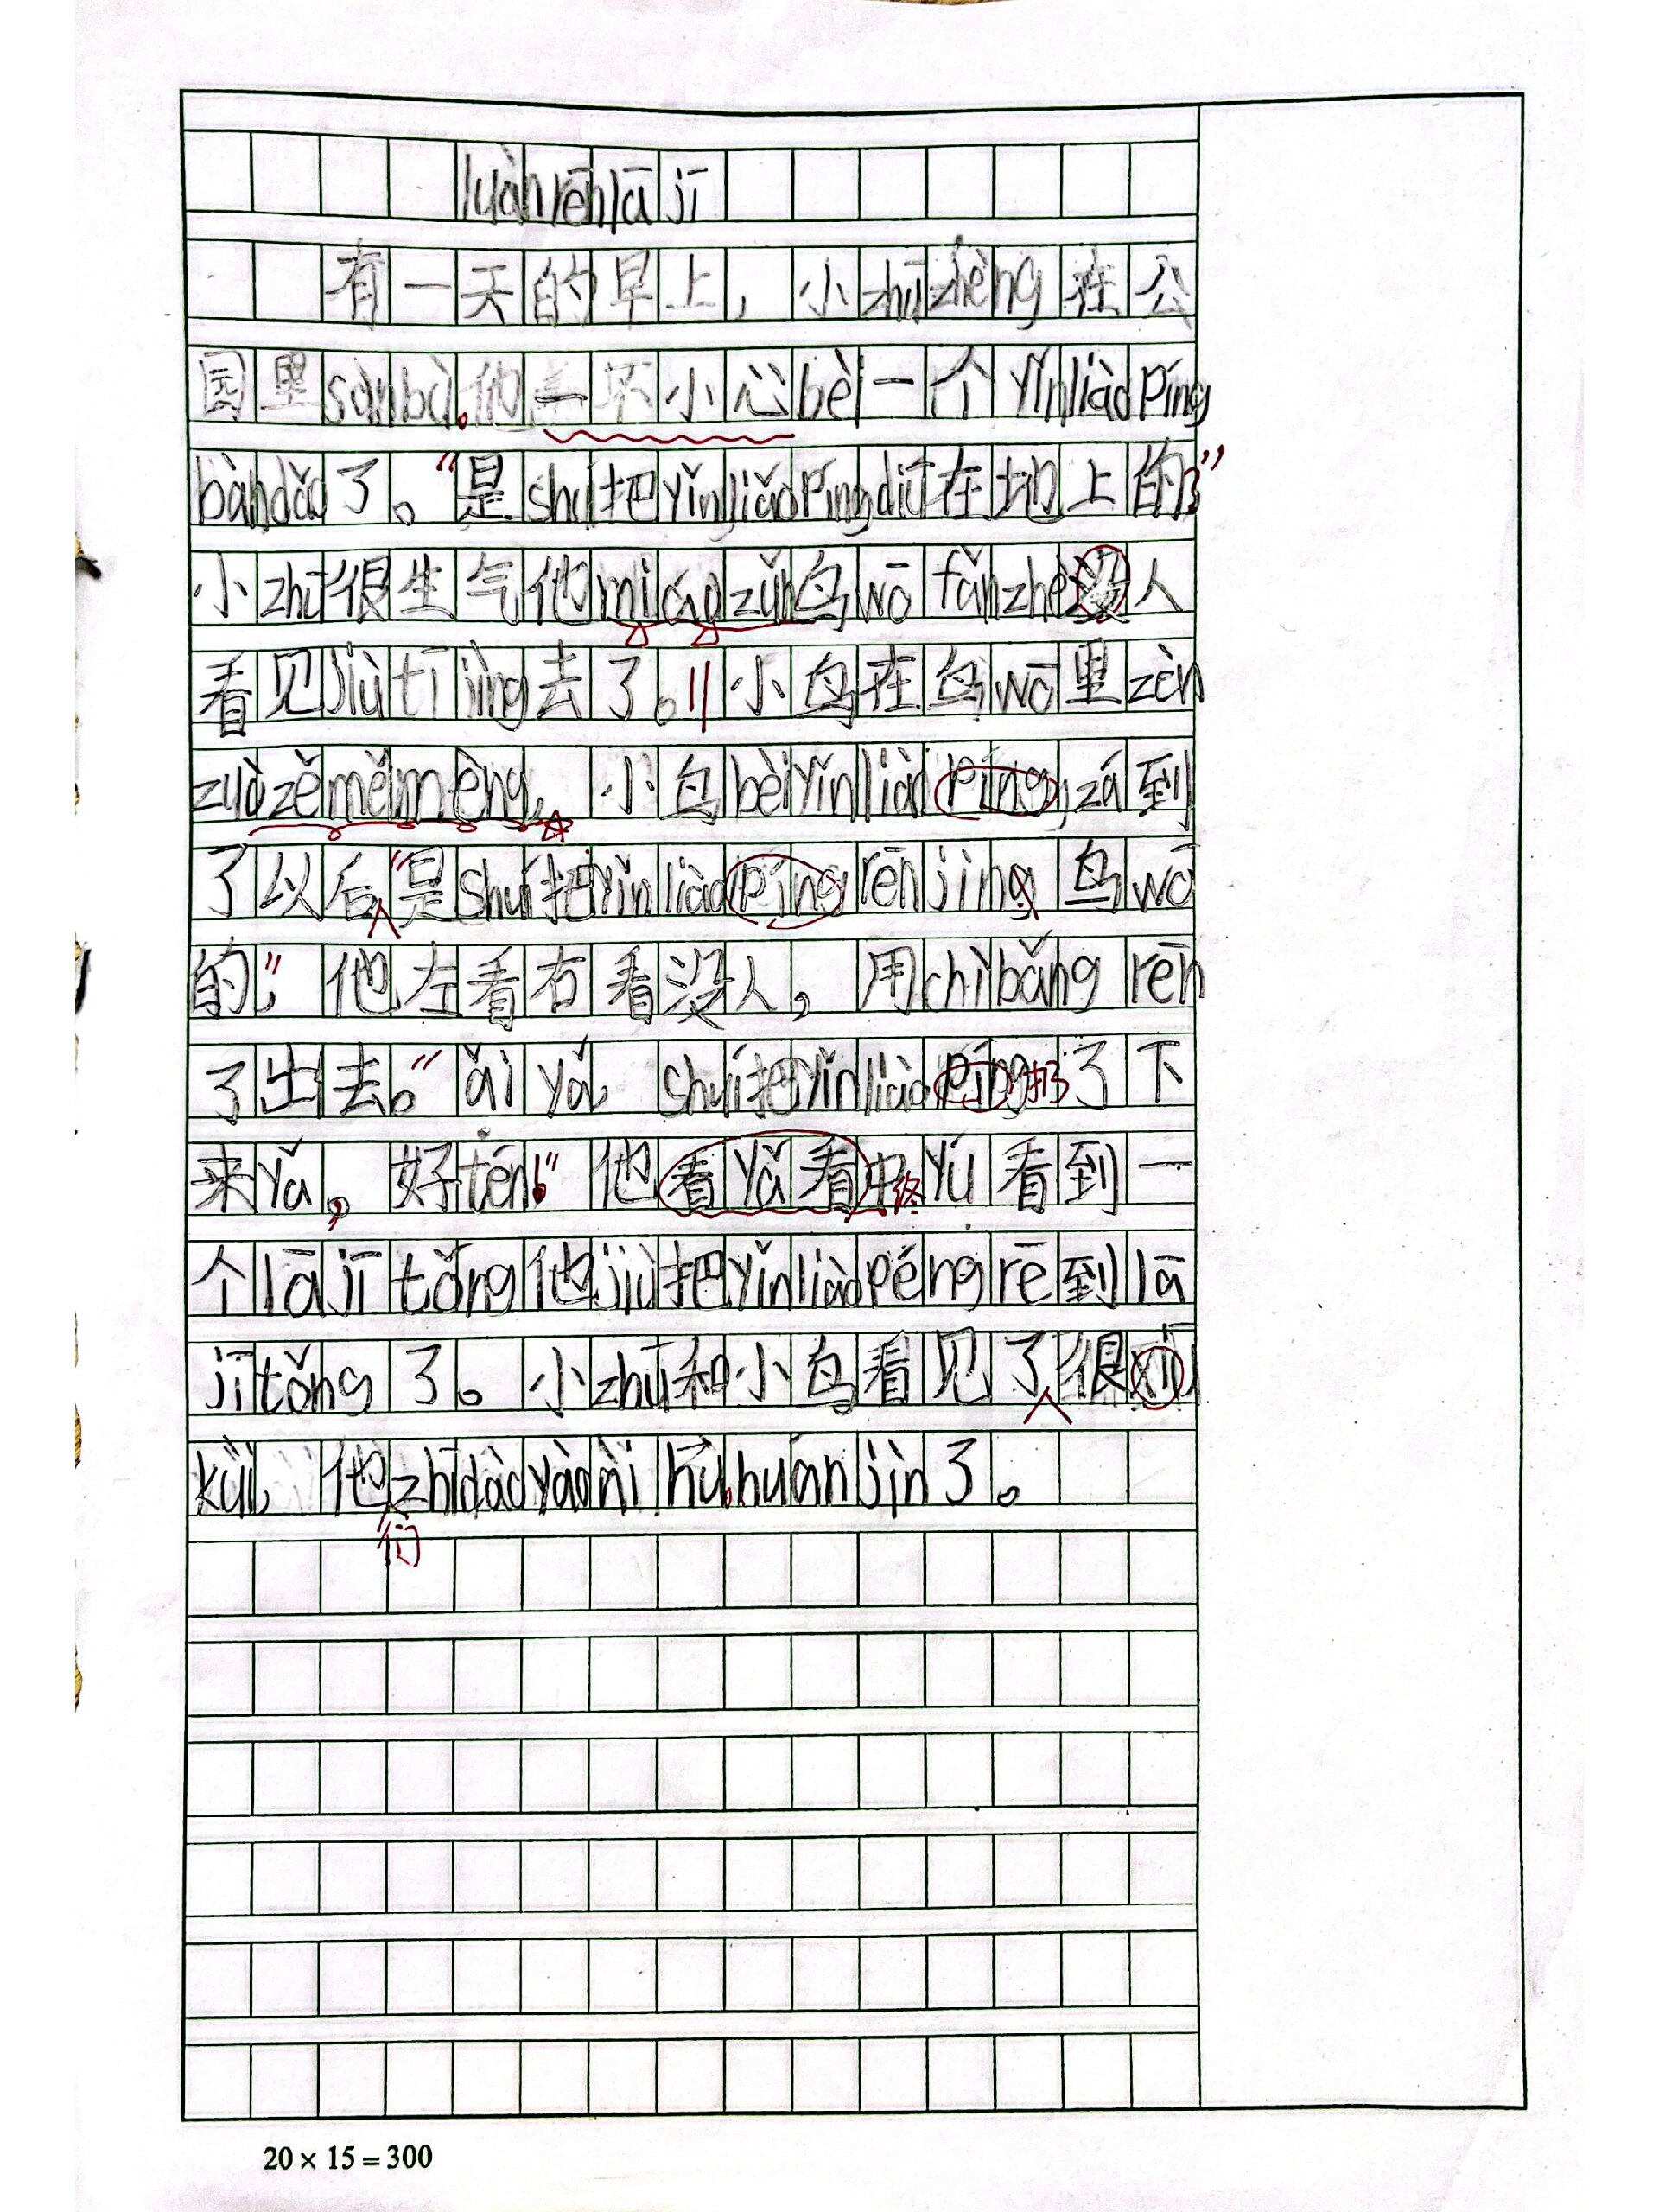 luàn rēn lā jī
有一天的早上，小zhū zhèng在公
园里sàn bù。他一不小心bèi一个yǐn liào píng
bàn dǎo了。“是shuí把yǐn liǎo píng diū在地上的？”
小zhū很生气他miáo zǔn鸟wō fǎn zhè没人
看见jiù tī jìng去了。小鸟在鸟wō里zèn
zuò zě měi mèng，小鸟bèi yǐn liào píng zá到
了以后“是shuí把yǐn liào píng rēn jìn 鸟wō
的”，他左看右看没人，用chì bǎng rēn
了出去。”ǎi yá shuí把yǐn liào píng扔了下
来yǎ，好tén！”他看yǎ看中终yú看到一
个lā jī tǒng他jiù把yǐn liào péng rē到lā
jī tǒng了。小zhū和小鸟看见了很xiū
kùi，他们zhī dào yào ài hù huán jìn了。
20×15=300